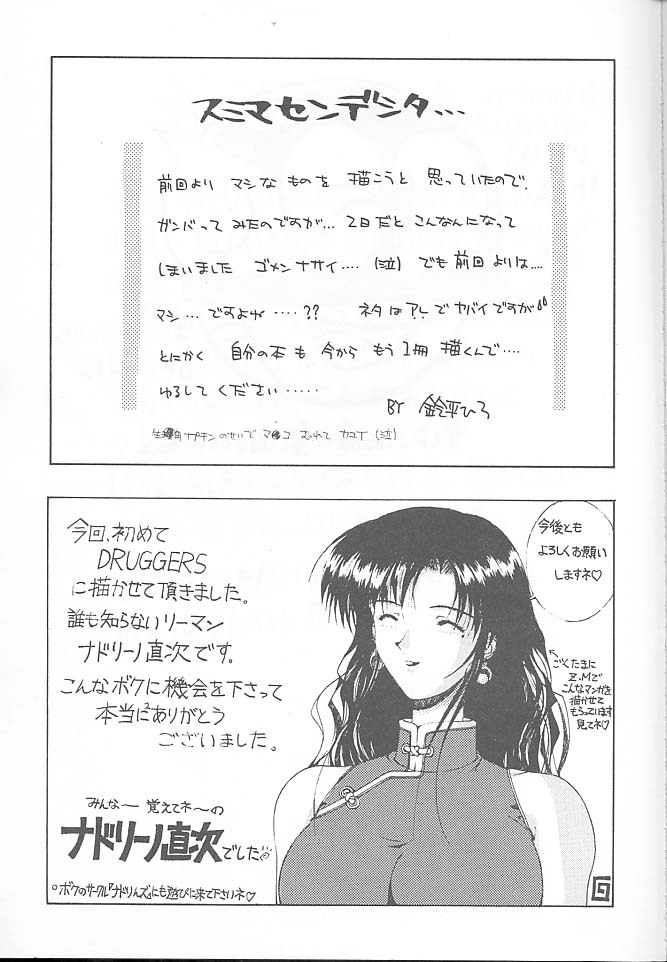 スミマセンデシタ...
前回より マシな ものを 描こうと 思っていたので、
ガンバって みたのですが... 2日だと こんなんになって
しまいました ゴメンナサイ.... (泣) でも前回よりは....
マシ... ですよね ....?? ネタはアレでヤバイですが
とにかく 自分の本も 今から もう1冊 描くんで....
ゆるして ください.....
BY 鈴平ひろ
ナプキン のせいで マ●コ むれて カユイ (泣)
今回、初めて
DRUGGERS
に描かせて頂きました。
誰も知らないリーマン
ナドリーノ直次です。
こんなボクに機会を下さって
本当にありがとう
ございました。
みんなー 覚えてネ〜の
ナドリーノ直次でした
○ボクのサークル『ナドりんズ』にも遊びに来て下さいネ♡
今後とも
よろしくお願い
しますネ♡
←ごくたまに
Z.Mで
こんなマンガを
描かせて
もらっています
見てネ♡